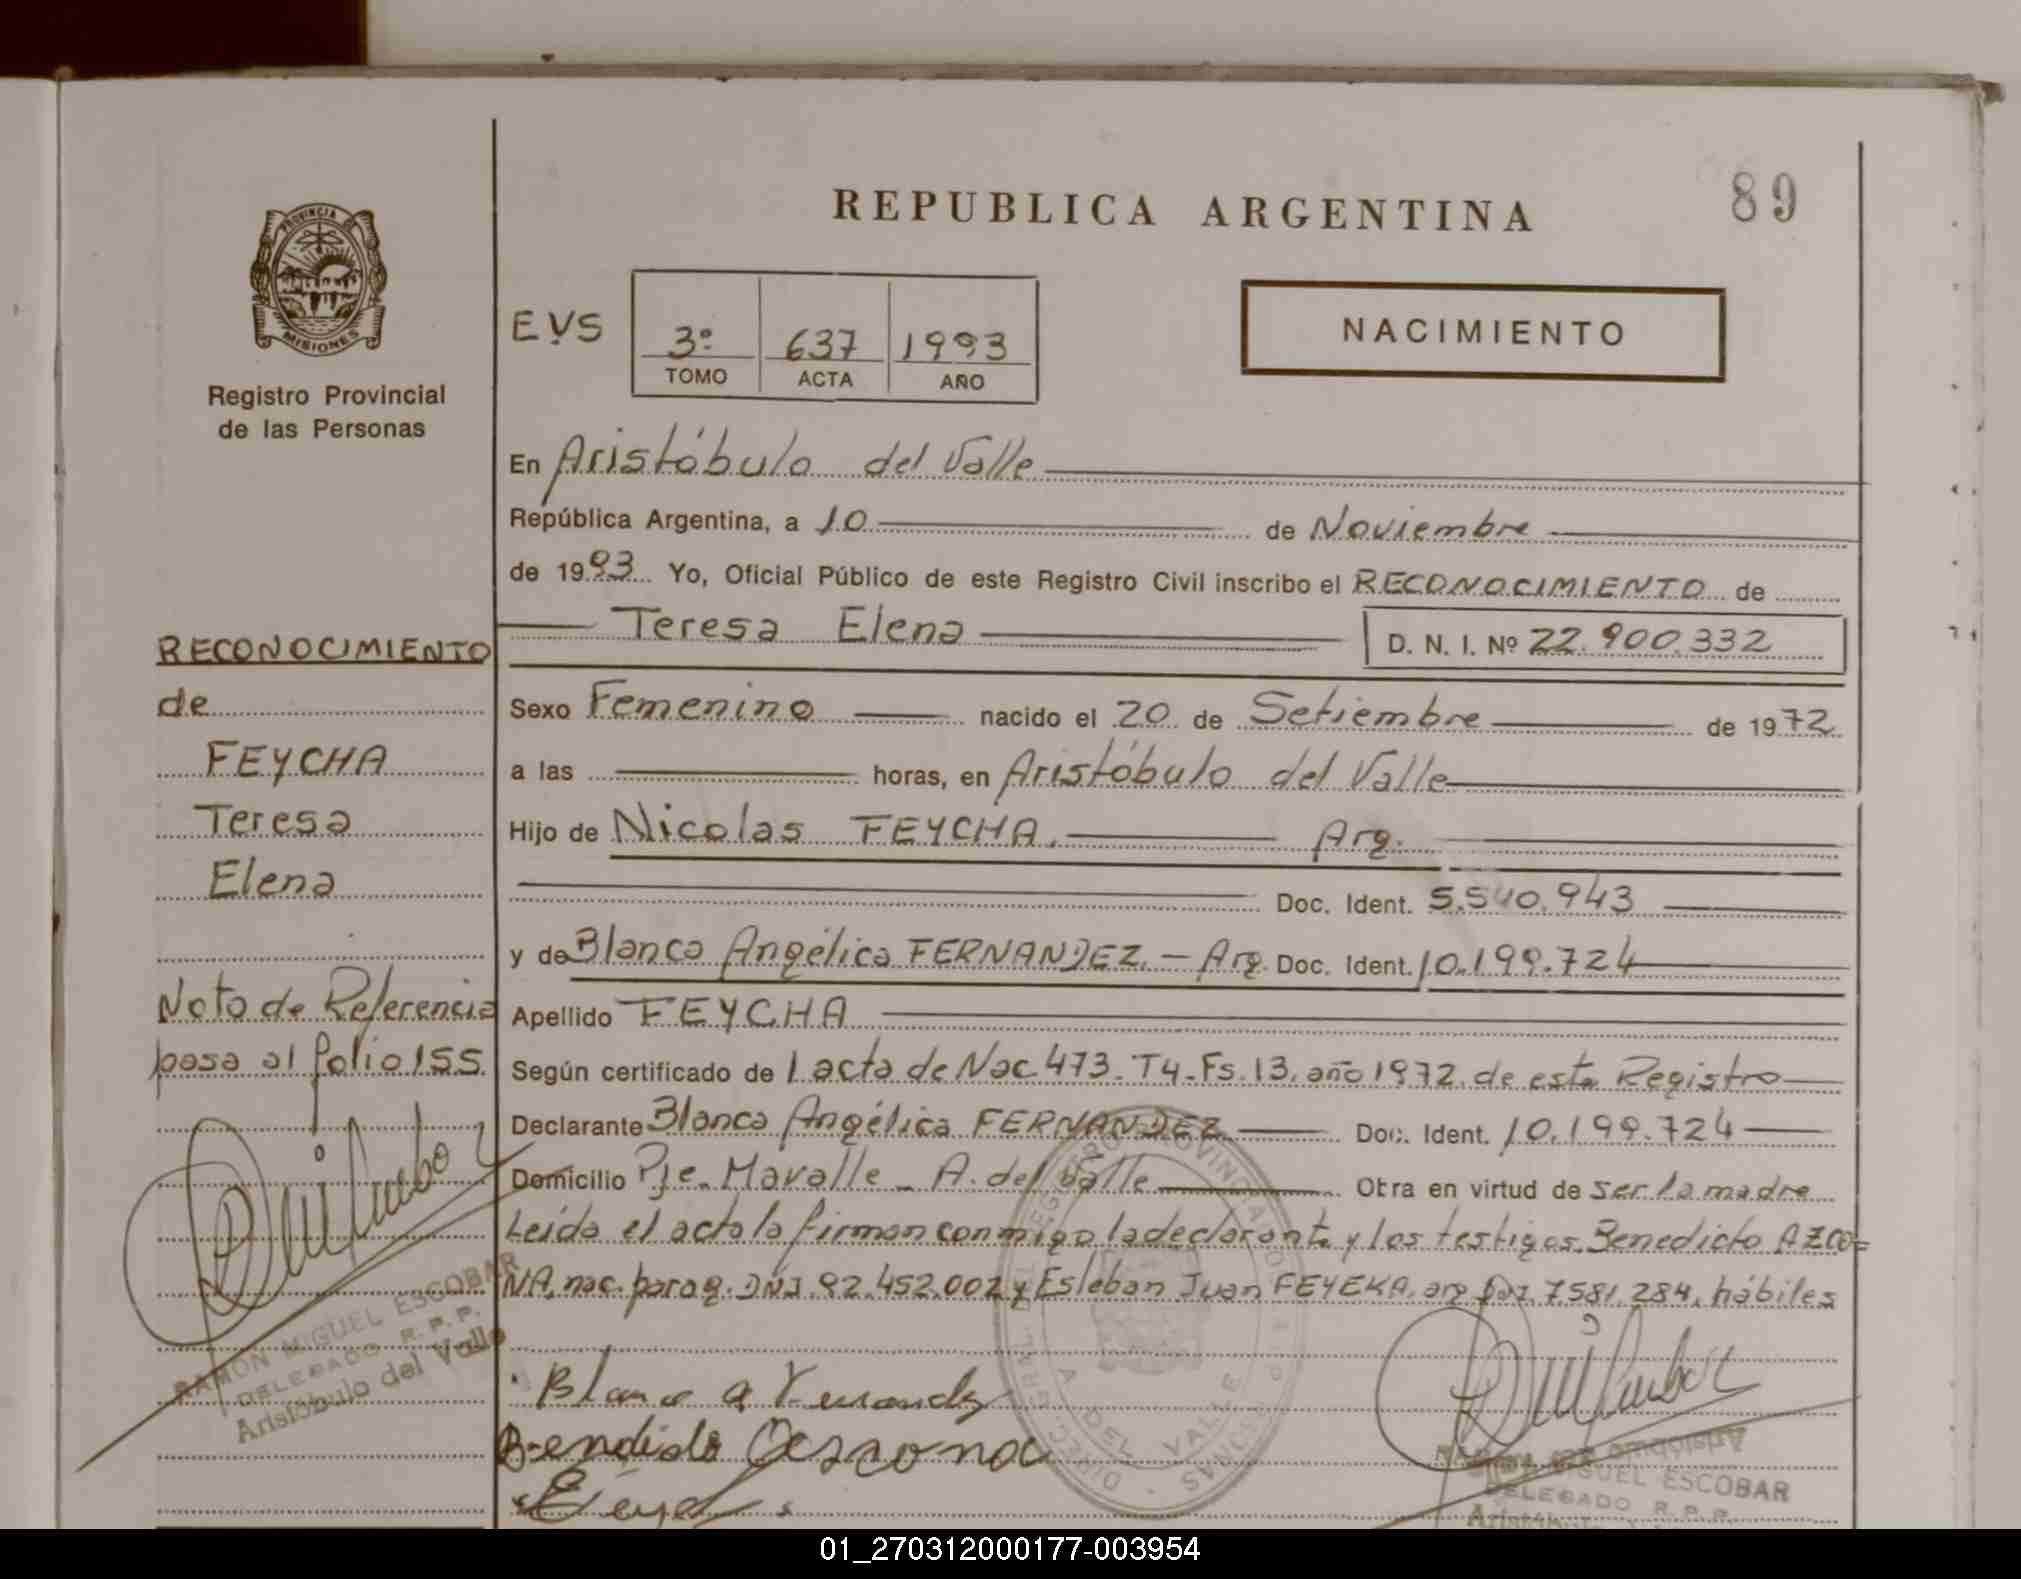 89
REPUBLICA ARGENTINA
PROVINCIA DE
MISIONES
Registro Provincial
de las Personas
EVS
3º 637 1993
TOMO ACTA AÑO
NACIMIENTO
En Aristóbulo del Valle
República Argentina, a 10 de Noviembre
de 1993 Yo, Oficial Público de este Registro Civil inscribo el RECONOCIMIENTO de
Teresa Elena D. N. I. Nº 22.900.332
Sexo Femenino nacido el 20 de Setiembre de 1972
a las horas, en Aristóbulo del Valle
Hijo de Nicolas FEYCHA. Arg.
Doc. Ident. 5.540.943
y de Blanca Angélica FERNANDEZ. - Arg. Doc. Ident. 10.199.724
Apellido FEYCHA
Según certificado de 1 acta de Nac 473. T4. Fs. 13. año 1972. de este Registro
Declarante Blanca Angélica FERNANDEZ Doc. Ident. 10.199.724
Domicilio Pje. Mavalle - A. del Valle Obra en virtud de ser la madre
Leída el acta la firman conmigo la declarante y los testigos. Benedicto AZCO=
NA, nac. parag. DNI. 92.452.002 y Esteban Juan FEYEKA, arg. 7.581.284, hábiles
RECONOCIMIENTO
de
FEYCHA
Teresa
Elena
Nota de Referencia
pasa al folio 155
RAMON MIGUEL ESCOBAR
DELEGADO R. P. P.
Aristóbulo del Valle
Blanca a
A. DEL VALLE
MIGUEL ESCOBAR
DELEGADO R. P. P.
01_270312000177-003954